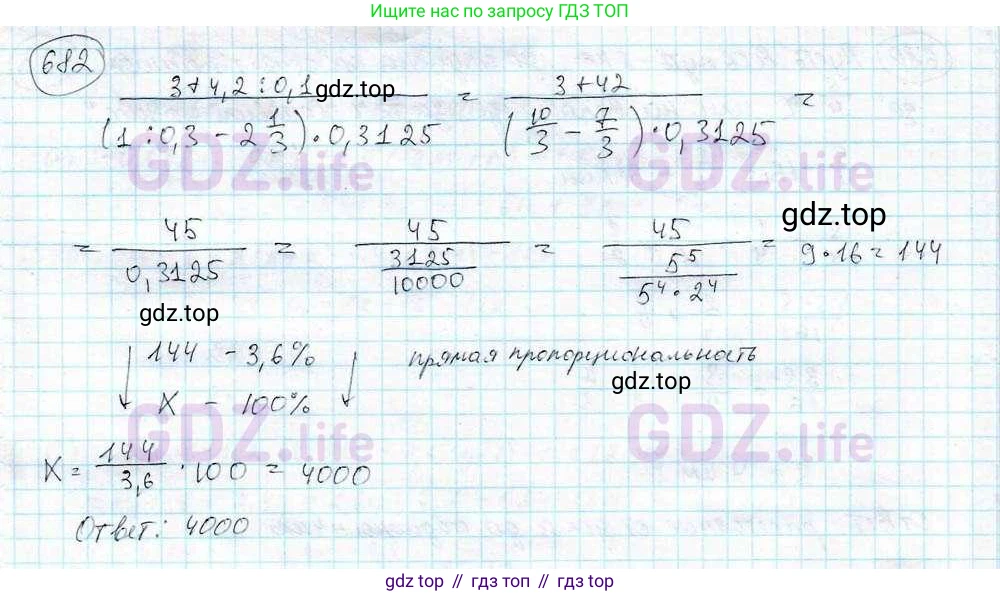 Ищите нас по запросу ГДЗ ТОП
682
(3 + 4,2 : 0,1) / ((1 : 0,3 - 2 1/3) · 0,3125) = (3 + 42) / ((10/3 - 7/3) · 0,3125) =
gdz.top
GDZ.life GDZ.life
= 45 / 0,3125 = 45 / (3125/10000) = 45 / (5⁵/(5⁴ · 2⁴)) = 9 · 16 = 144
gdz.top
gdz.top
↓ 144 - 3,6% ↓ прямая пропорциональность
gdz.top
x - 100%
GDZ.life GDZ.life
x = 144/3,6 · 100 = 4000
Ответ: 4000
gdz top // гдз топ // gdz top